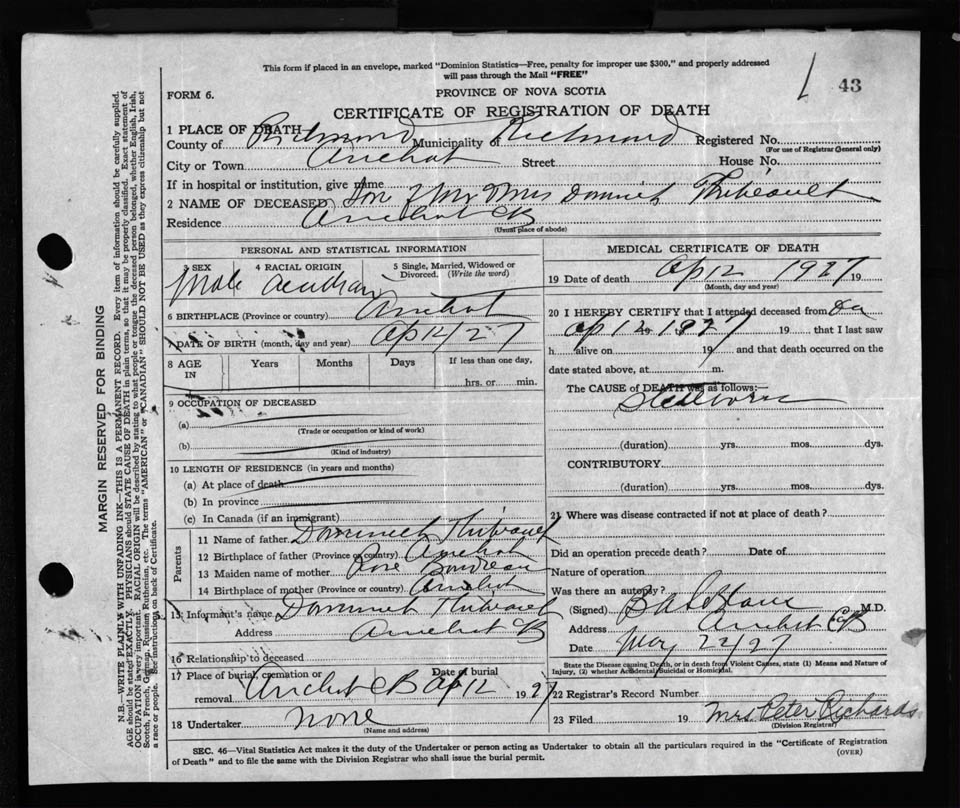 This form if placed in an envelope, marked "Dominion Statistics—Free, penalty for improper use $300," and properly addressed
will pass through the Mail "FREE"
43
FORM 6.
PROVINCE OF NOVA SCOTIA
CERTIFICATE OF REGISTRATION OF DEATH
MARGIN RESERVED FOR BINDING
N.B.—WRITE PLAINLY WITH UNFADING INK—THIS IS A PERMANENT RECORD. Every item of information should be carefully supplied.
AGE should be stated EXACTLY. PHYSICIANS should STATE CAUSE OF DEATH in plain terms, so that it may be properly classified. Exact statement of
OCCUPATION is very important. RACIAL ORIGIN will be described by stating to what people or tongue the deceased person belonged, whether English, Irish,
Scotch, French, German, Russian, Ruthenian, etc. The terms "AMERICAN" or "CANADIAN" SHOULD NOT BE USED as they express citizenship but not
a race or people. See instructions on back of Certificate.
1 PLACE OF DEATH—
County of Richmond Municipality of Richmond Registered No.
(For use of Registrar General only)
City or Town Arichat Street House No.
If in hospital or institution, give name
2 NAME OF DECEASED Son of Mr & Mrs Dominick Thibeault
Residence Arichat CB
(Usual place of abode)
PERSONAL AND STATISTICAL INFORMATION
3 SEX 4 RACIAL ORIGIN 5 Single, Married, Widowed or
Divorced. (Write the word)
Male Acadian
6 BIRTHPLACE (Province or country) Arichat
7 DATE OF BIRTH (month, day and year) Ap 12/27
8 AGE IN Years Months Days If less than one day,
hrs. or min.
9 OCCUPATION OF DECEASED
(a)
(Trade or occupation or kind of work)
(b)
(Kind of industry)
10 LENGTH OF RESIDENCE (in years and months)
(a) At place of death
(b) In province
(c) In Canada (if an immigrant)
Parents
11 Name of father Dominick Thibeault
12 Birthplace of father (Province or country) Arichat
13 Maiden name of mother Rose Boudreau
14 Birthplace of mother (Province or country) Arichat
15 Informant's name Dominick Thibeault
Address Arichat CB
16 Relationship to deceased
17 Place of burial, cremation or Date of burial
removal Arichat CB Ap 12 1927
18 Undertaker none
(Name and address)
MEDICAL CERTIFICATE OF DEATH
19 Date of death Ap 12 1927 19
(Month, day and year)
20 I HEREBY CERTIFY that I attended deceased from
Ap 12 1927 19 that I last saw
h alive on 19 and that death occurred on the
date stated above, at m.
The CAUSE of DEATH was as follows:—
Stillborn
(duration) yrs. mos. dys.
CONTRIBUTORY
(duration) yrs. mos. dys.
21 Where was disease contracted if not at place of death?
Did an operation precede death? Date of
Nature of operation
Was there an autopsy?
(Signed) M.D.
Address Arichat CB
Date May 22/27
State the Disease causing Death, or in death from Violent Causes, state (1) Means and Nature of
Injury, (2) whether Accidental, Suicidal or Homicidal.
22 Registrar's Record Number
23 Filed 19 Mrs Peter Richards
(Division Registrar)
SEC. 46—Vital Statistics Act makes it the duty of the Undertaker or person acting as Undertaker to obtain all the particulars required in the "Certificate of Registration
of Death" and to file the same with the Division Registrar who shall issue the burial permit.
(OVER)